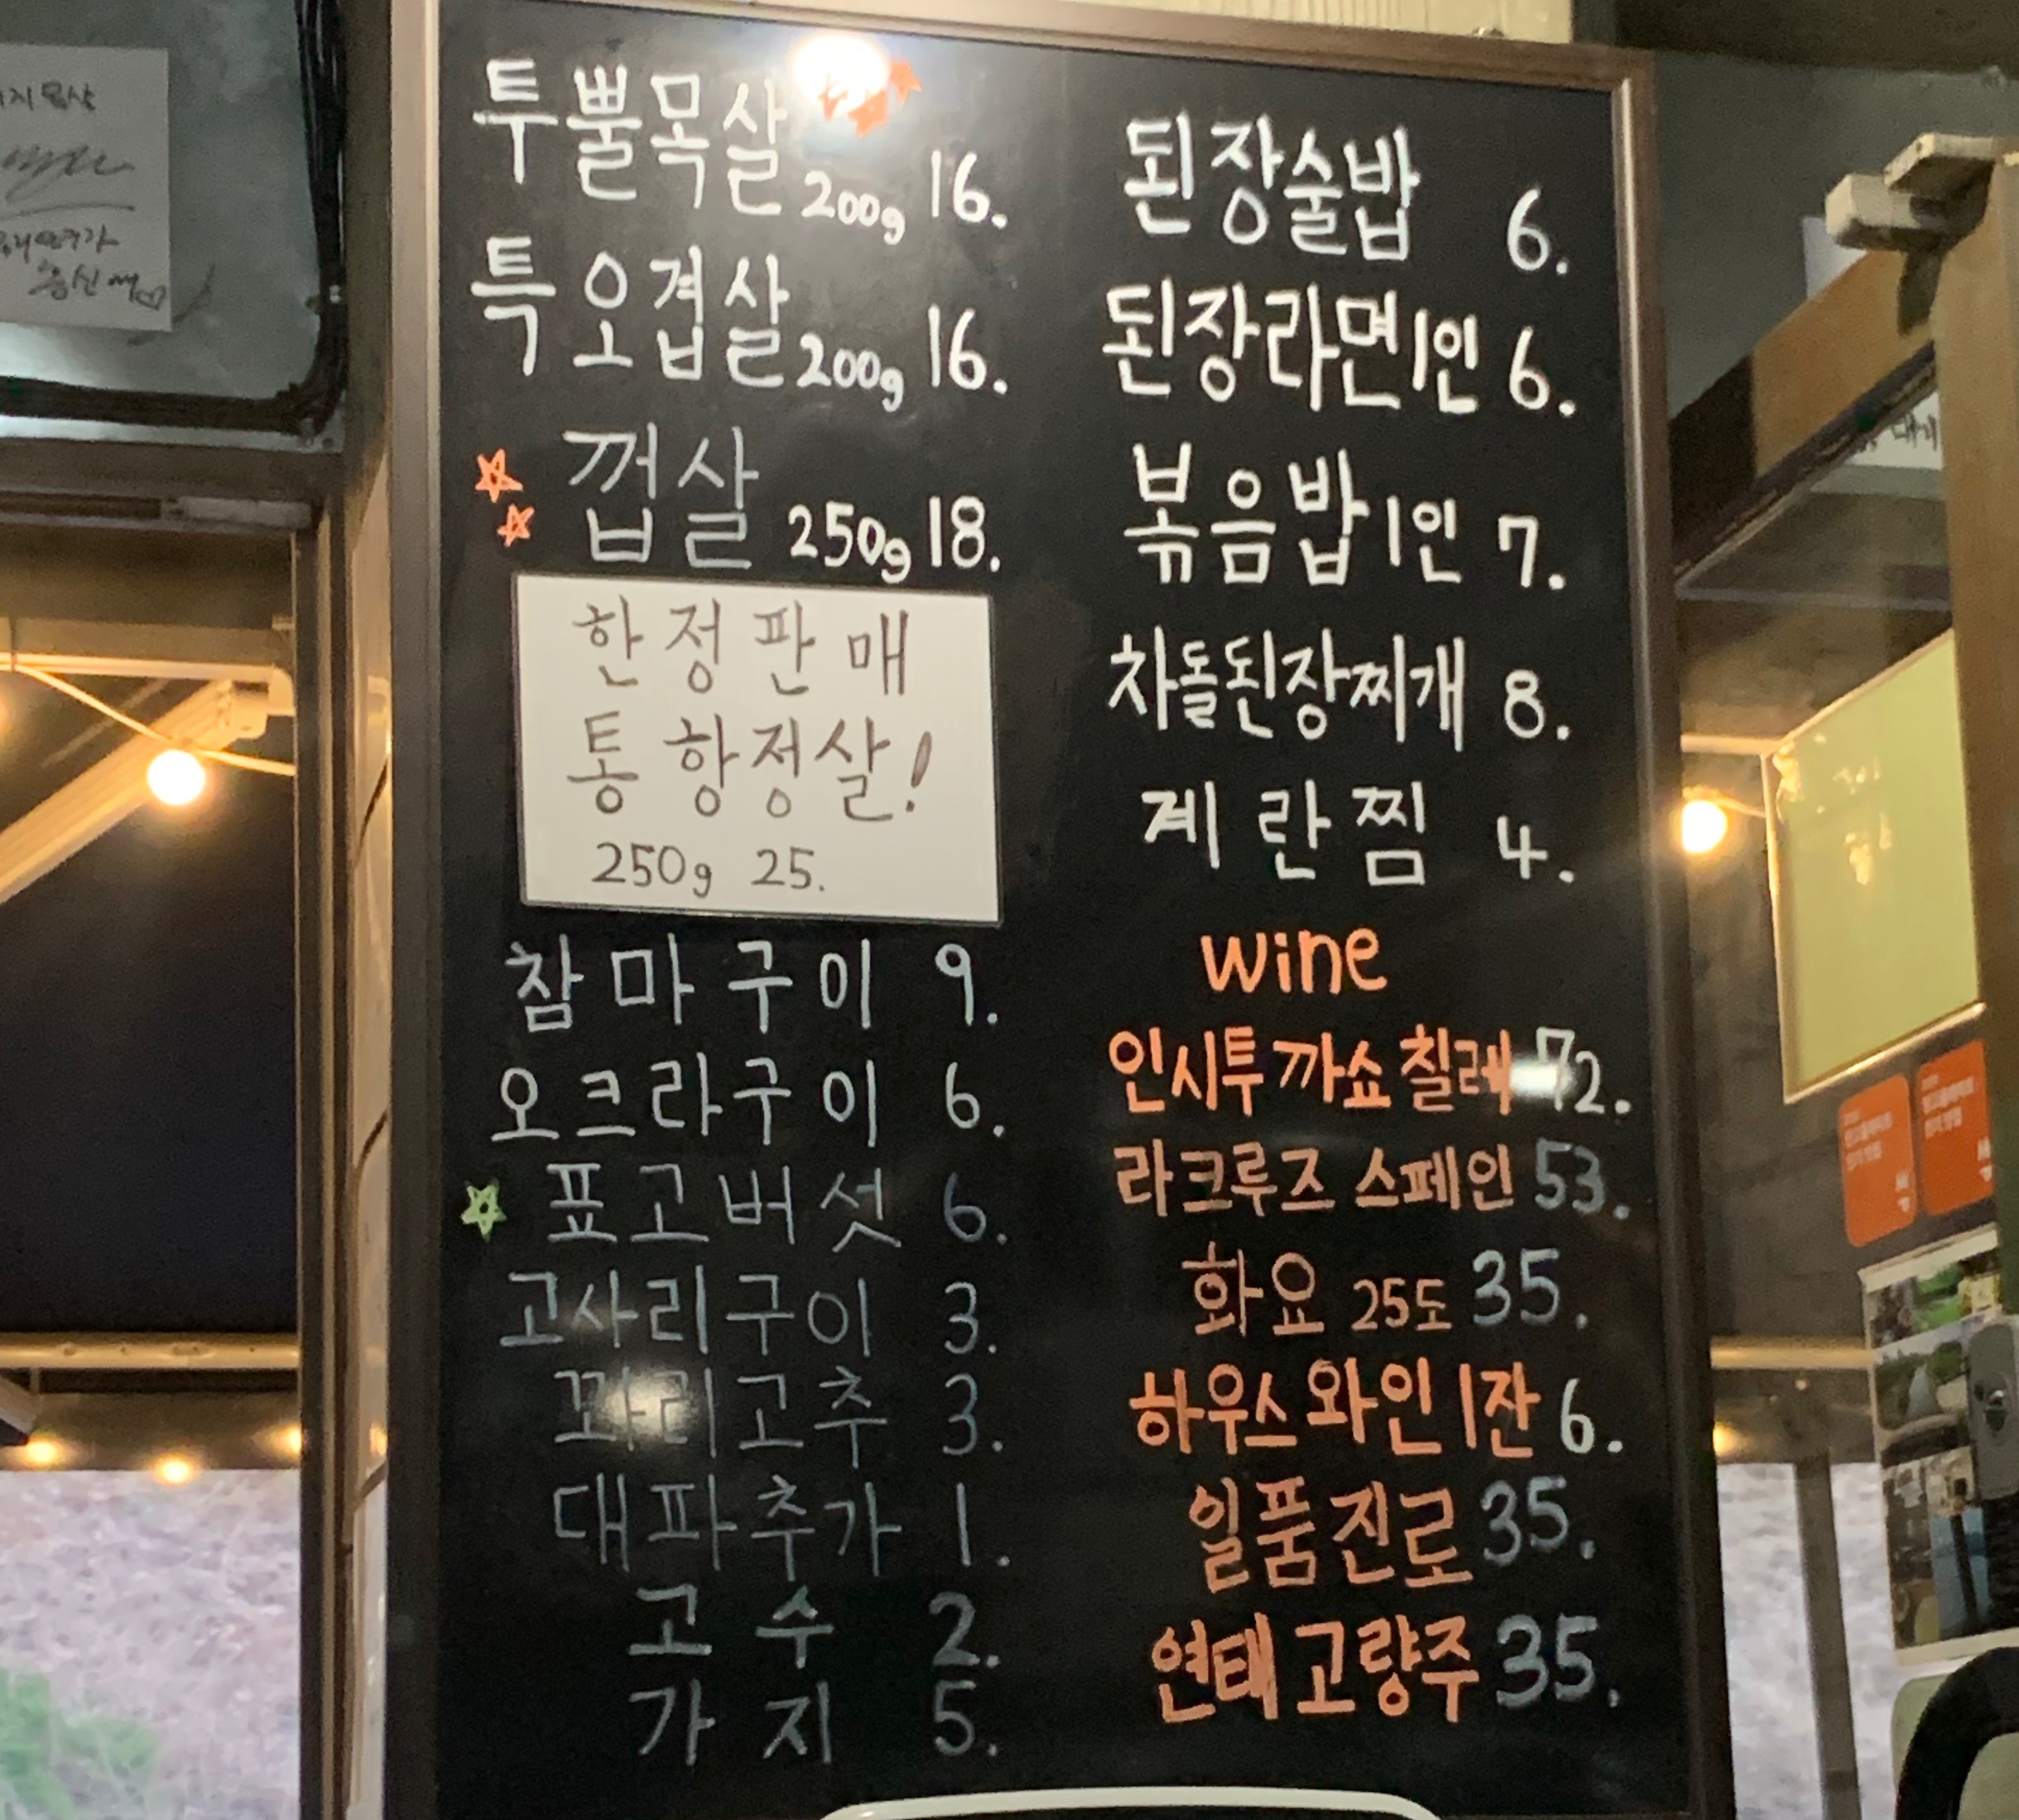 투뿔목살 200g 16.
특오겹살 200g 16.
껍살 250g 18.
한정판매
통 항정살!
250g 25.
참마구이 9.
오크라구이 6.
표고버섯 6.
고사리구이 3.
꽈리고추 3.
대파추가 1.
고수 2.
가지 5.
된장술밥 6.
된장라면 1인 6.
볶음밥 1인 7.
차돌된장찌개 8.
계란찜 4.
wine
인시투 까쇼 칠레 72.
라크루즈 스페인 53.
화요 25도 35.
하우스 와인 1잔 6.
일품진로 35.
연태 고량주 35.